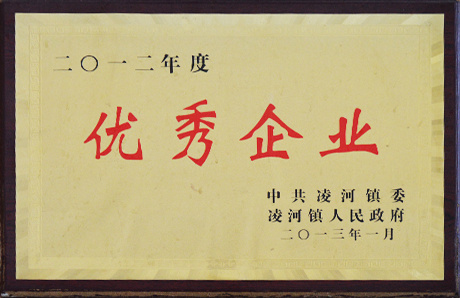 二〇一二年度
优秀企业
中共凌河镇委
凌河镇人民政府
二〇一三年一月